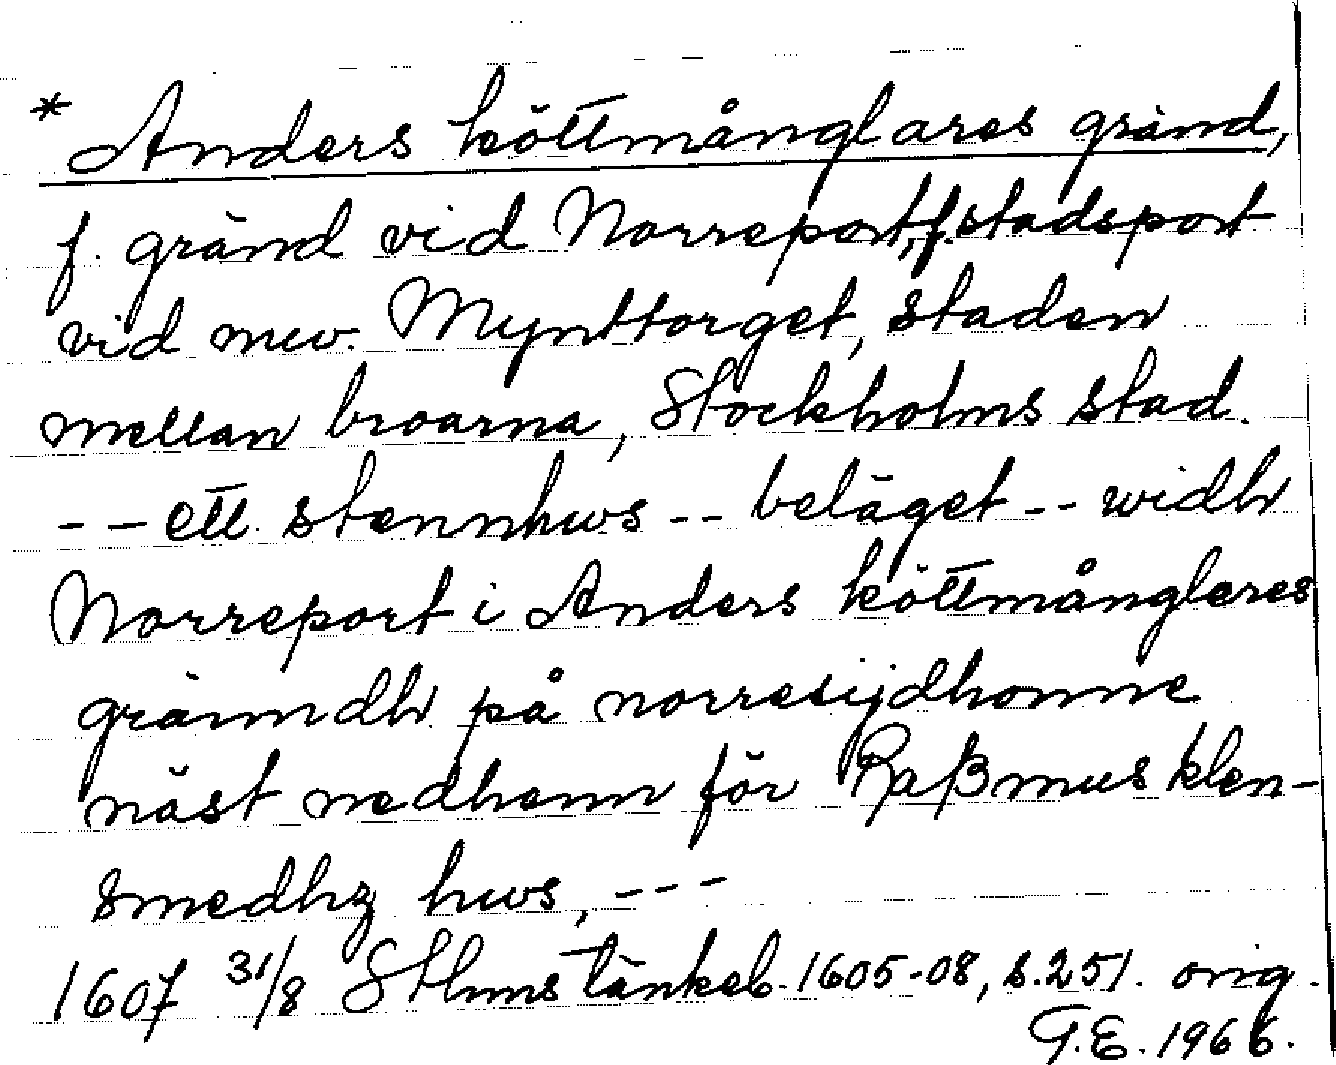 * Anders köttmånglares gränd,
f. gränd vid Norreport, f. stadsport
vid nuv. Mynttorget, Staden
mellan broarna, Stockholms stad.
-- ett stennhws -- beläget -- widh
Norreport i Anders köttmångleres
gränndh på norresijdhonne
näst nedhenn för Raßmus klen-
smedhz hws, ---
1607 31/8 Sthms tänkeb. 1605-08, s. 251. orig.
G.E. 1966.